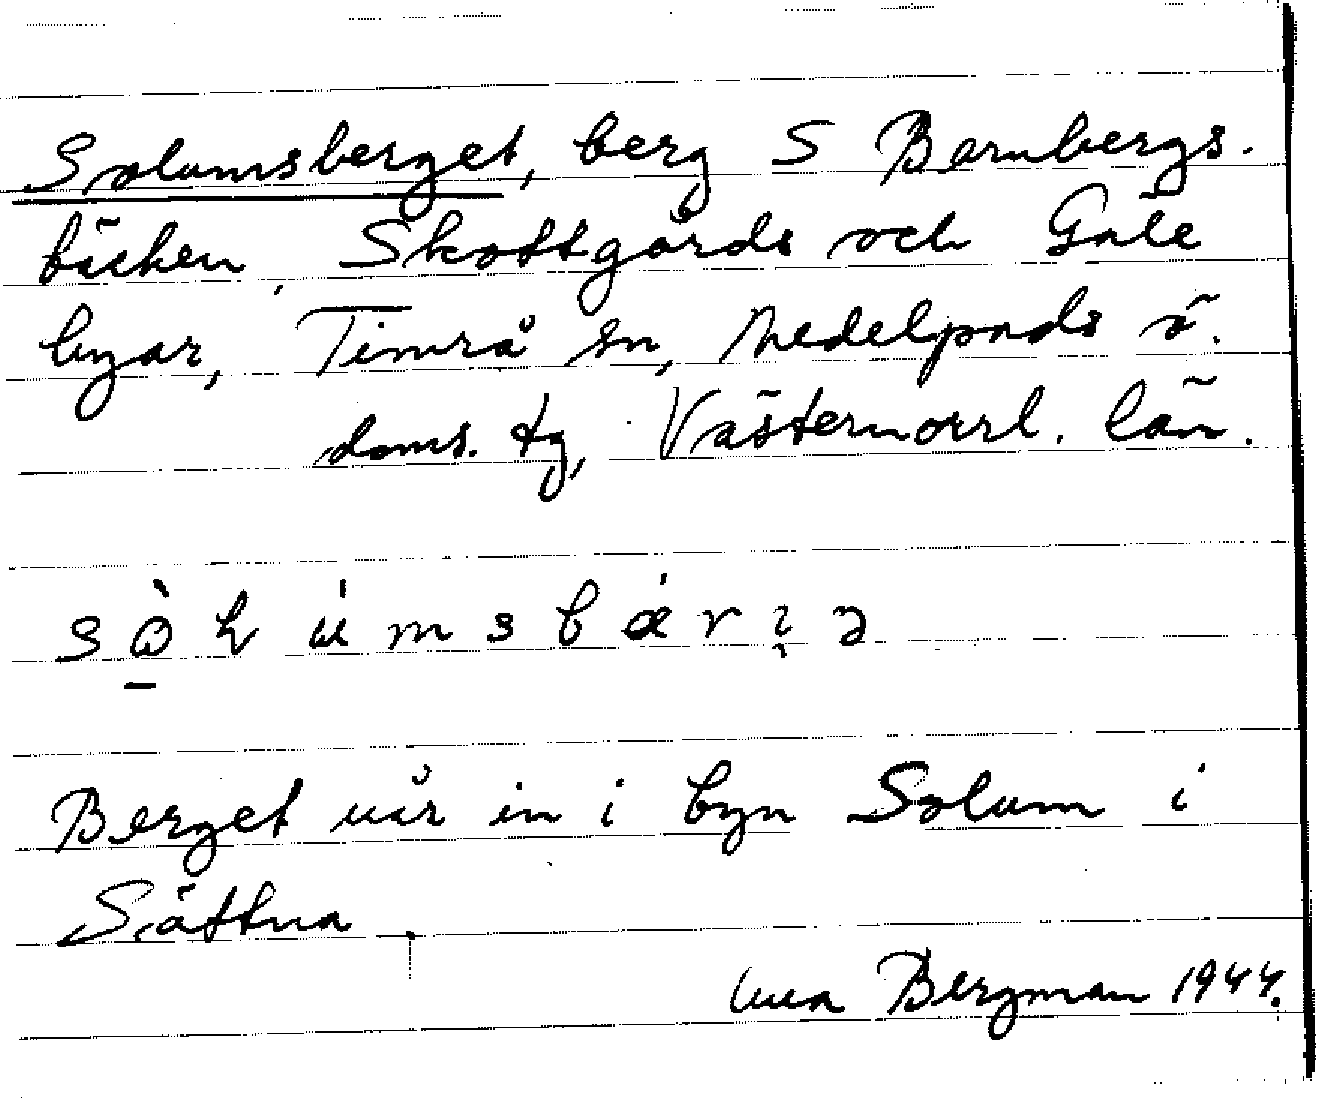 Solumsberget, berg S Barnbergs-
bäcken, Skottgårds och Gåle
byar, Timrå sn, Medelpads ö.
doms. tg, Västernorrl. län.
Berget når in i byn Solum i
Sättna
Bergman 1944.